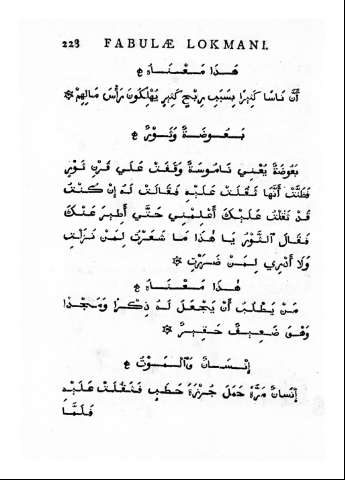 228 FABULÆ LOKMANI.
هٰذَا مَعْنَاه
أَنَّ نَاسًا كَثِيرًا بِسَبَبِ رِبْحٍ كَثِيرٍ يُهْلِكُونَ رَأْسَ مَالِهِمْ
بَعُوضَةٌ وَثَوْرٌ
بَعُوضَةٌ يَعْنِي نَامُوسَةٌ وَقَفَتْ عَلَي قَرْنِ ثَوْرٍ
فَظَنَّتْ أَنَّهَا ثَقُلَتْ عَلَيْهِ فَقَالَتْ لَهُ إِنْ كُنْتُ
قَدْ ثَقُلْتُ عَلَيْكَ أَعْلِمْنِي حَتَّي أَطِيرَ عَنْكَ
فَقَالَ الثَّوْرُ يَا هٰذَا مَا شَعَرْتُ لِمَنْ نَزَلْتِ
وَلَا أَدْرِي لِمَنْ ضَرَرْتِ
هٰذَا مَعْنَاه
مَنْ يَطْلُبُ أَنْ يَجْعَلَ لَهُ ذِكْرًا وَمَجْدًا
وَهْوَ ضَعِيفٌ حَقِيرٌ
إِنْسَانٌ وَالْمَوْتُ
إِنْسَانٌ مَرَّةً حَمَلَ جُرْزَةَ حَطَبٍ فَثَقُلَتْ عَلَيْهِ
فَلَمَّا